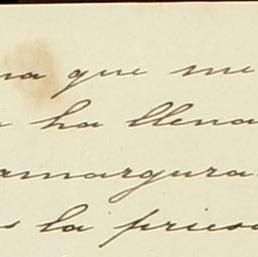 na que me
ha llena
amargura
s la prieso